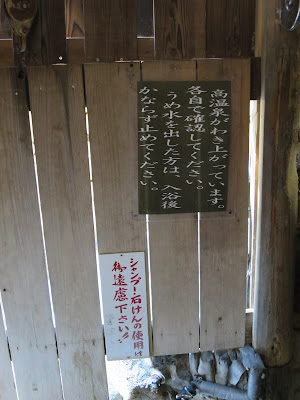 高温泉がわき上がっています。
各自で確認してください。
うめ水を出した方は、入浴後
かならず止めてください。
シャンプー石けんの使用は
御遠慮下さい!!